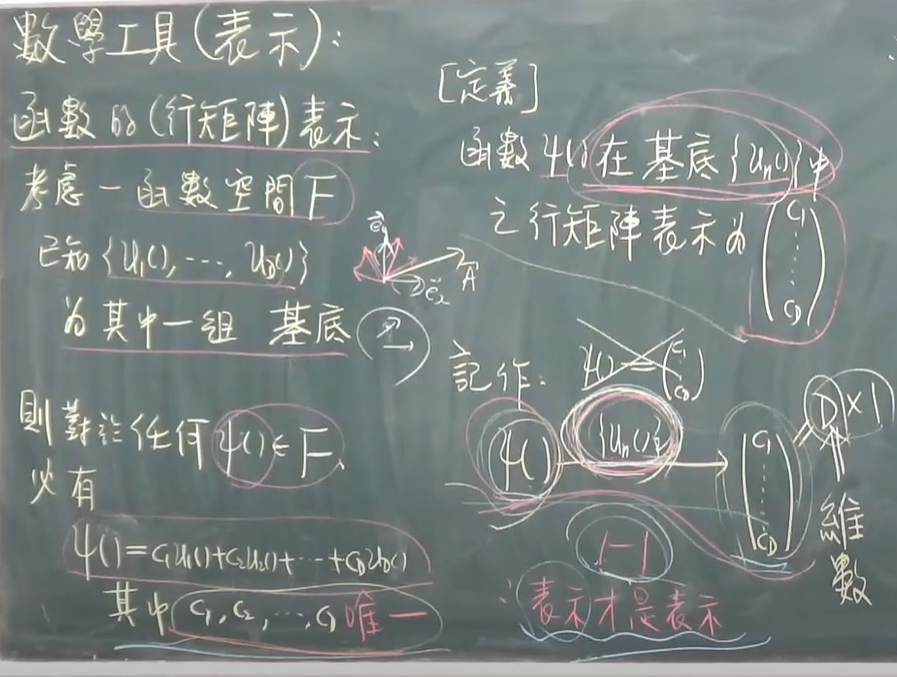 數學工具(表示):
函數的(行矩陣)表示:
考慮一函數空間F
已知{U₁(),…,U_D()}
為其中一組 基底
則對於任何ψ()∈F、
必有
ψ()=C₁U₁()+C₂U₂()+…+C_DU_D()
其中C₁,C₂,…,C_D唯一
e⃗₂
A⃗
[定義]
函數ψ()在基底{Uₙ()}中
之行矩陣表示為
C₁
⋮
C_D
記作:
ψ()=(C₁ ⋮ C_D)
ψ() {Uₙ()} → (C₁ ⋮ C_D) D×1
維數
1-1
∴表示才是表示